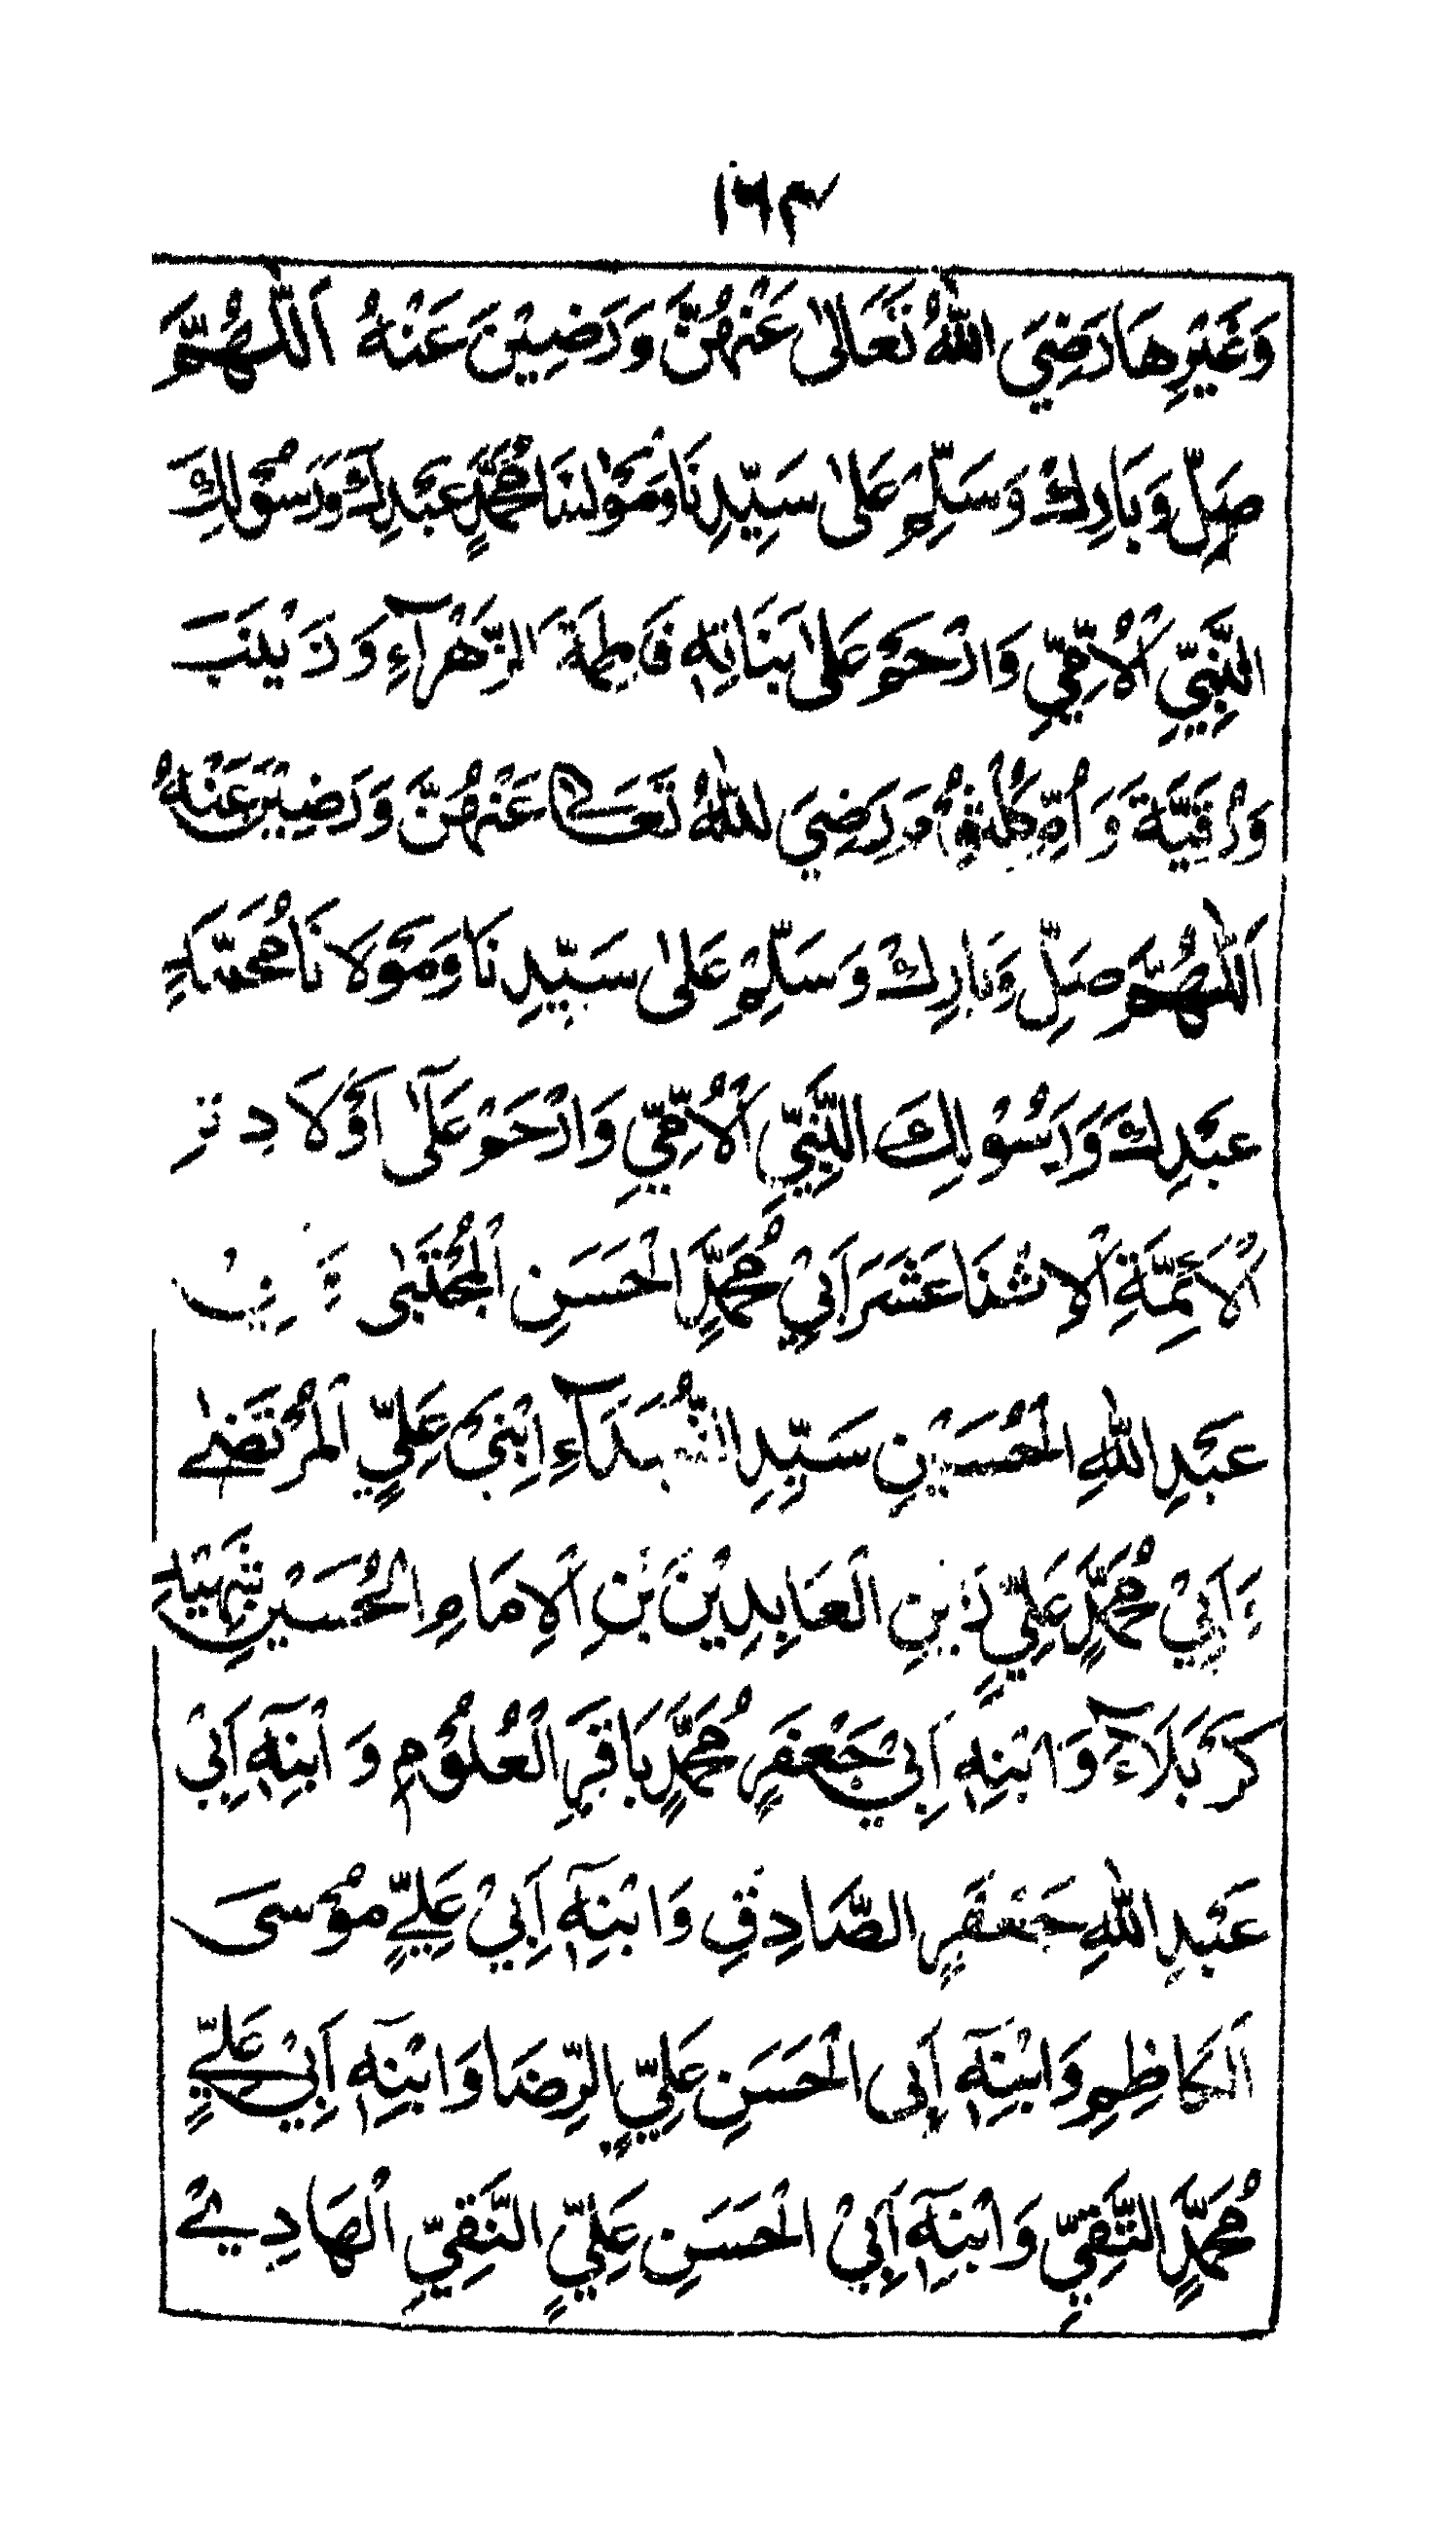 ١٦٣
وَغَيْرِهَا رَضِيَ اللّٰهُ تَعَالٰى عَنْهُنَّ وَرَضِيْنَ عَنْهُ اَللّٰهُمَّ
صَلِّ وَبَارِكْ وَسَلِّمْ عَلٰى سَيِّدِنَا وَمَوْلٰنَا مُحَمَّدٍ عَبْدِكَ وَرَسُوْلِكَ
النَّبِيِّ الْاُمِّيِّ وَارْحَمْ عَلٰى بَنَاتِهٖ فَاطِمَةَ الزَّهْرَآءِ وَزَيْنَبَ
وَرُقَيَّةَ وَاُمِّ كُلْثُوْمَ رَضِيَ اللّٰهُ تَعَالٰى عَنْهُنَّ وَرَضِيْنَ عَنْهُ
اَللّٰهُمَّ صَلِّ وَبَارِكْ وَسَلِّمْ عَلٰى سَيِّدِنَا وَمَوْلَانَا مُحَمَّدٍ
عَبْدِكَ وَرَسُوْلِكَ النَّبِيِّ الْاُمِّيِّ وَارْحَمْ عَلٰٓى اَوْلَادِ
الْاَئِمَّةِ الْاِثْنَا عَشَرَ اَبِيْ مُحَمَّدٍ الْحَسَنِ الْمُجْتَبٰى
عَبْدِ اللّٰهِ الْحُسَيْنِ سَيِّدِ الشُّهَدَآءِ ابْنَيْ عَلِيٍّ الْمُرْتَضٰى
اَبِيْ مُحَمَّدٍ عَلِيٍّ زَيْنِ الْعَابِدِيْنَ بْنِ الْاِمَامِ الْحُسَيْنِ شَهِيْدِ
كَرْبَلَآءَ وَابْنِهٖ اَبِيْ جَعْفَرٍ مُحَمَّدٍ بَاقِرِ الْعُلُوْمِ وَابْنِهٖٓ اَبِيْ
عَبْدِ اللّٰهِ جَعْفَرٍ الصَّادِقِ وَابْنِهٖٓ اَبِيْ عَلِيٍّ مُوْسَى
الْكَاظِمِ وَابْنِهٖٓ اَبِى الْحَسَنِ عَلِيٍّ الرِّضَا وَابْنِهٖٓ اَبِيْ عَلِيٍّ
مُحَمَّدٍ التَّقِيِّ وَابْنِهٖٓ اَبِيْ الْحَسَنِ عَلِيٍّ النَّقِيِّ الْهَادِيْ